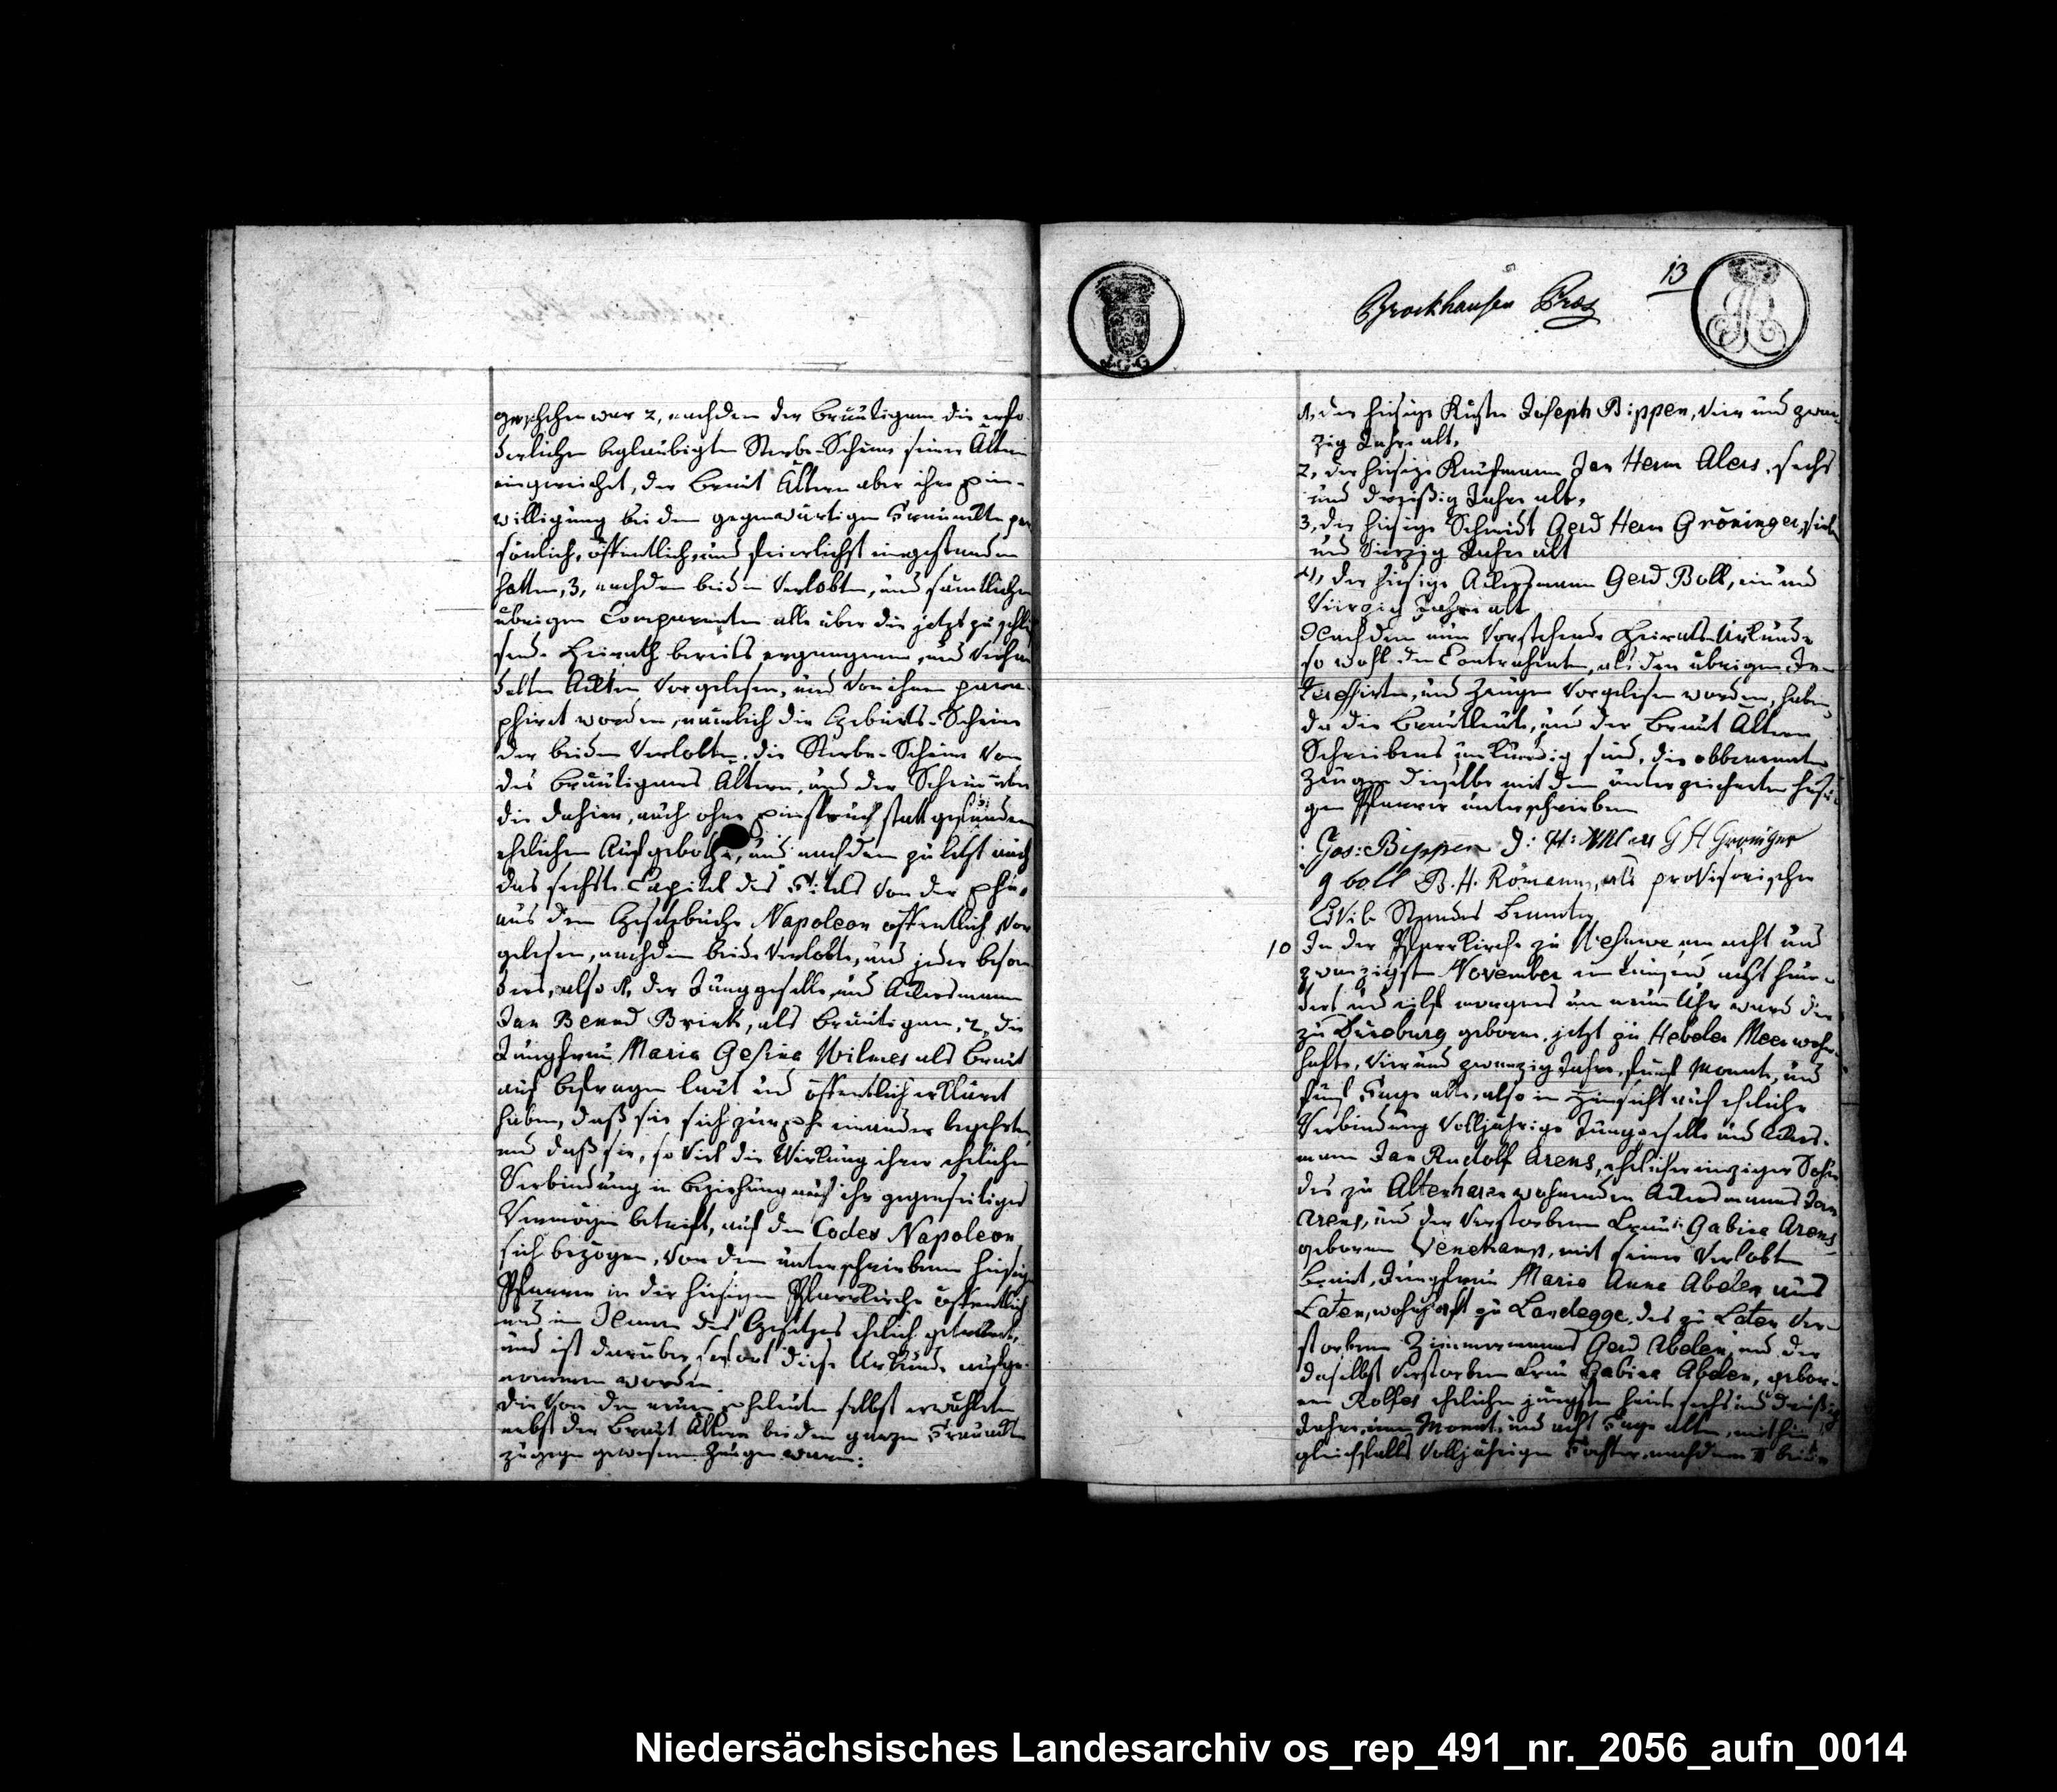 geschehen war 2, nachdem der Bräutigam die erfo-
derlichen beglaubigten Sterbe-Scheine seiner Ältern
eingereichet, der Braut Ältern aber ihre Ein-
willigung bei dem gegenwärtigen Trauackte per
sönlich, öffentlich, und feierlichst eingestanden
hatten, 3, nachdem beiden Verlobten, und sämtlichen
übrigen Comparenten alle über die jetzt zu schli
sende Heirath bereits ergangenen, und verhan
delten Ackten vorgelesen, und von ihnen para-
phiret worden, nämlich die Geburts-Scheine
der beiden Verlobten, die Sterbe-Scheine von
des Bräutigams Ältern, und der Schein über
die dahier, auch ohne Einspruch statt gefundenen
ehelichen Aufgebothe, und nachdem zuletzt auch
das sechste Capitel des Titels von der Ehe,
aus dem Gesetzbuche Napoleon öffentlich vor
gelesen, nachdem beide Verlobte, und jeder beson
ders, also 1, der Junggeselle und Ackersmann
Jan Berend Brink, als Bräutigam, 2, die
Jungfrau Maria Gesina Wilmes als Braut
auf befragen laut und öffentlich erkläret
haben, daß sie sich zur Ehe einander begehrten,
und daß sie, so viel die Wirkung ihrer ehelichen
Verbindung in Beziehung auf ihr gegenseitiges
Vermögen betrift, auf den Codex Napoleon
sich bezögen, von dem unterschriebenen hiesigen
Pfarrer in der hiesigen Pfarrkirche öffentlich
und im Namen des Gesetzes ehelich getrauet,
und ist darüber sofort diese Urkunde aufge-
nommen worden.
Die von den neuen Eheleuten selbst erwählten
nebst der Braut Ältern bei dem ganzen Trauackte
zugegen gewesenen Zeugen waren:
Brockhausen Præs
13
J.G.G
1, der hiesige Küster Joseph Bippen, vier und zwan
zig Jahre alt,
2, der hiesige Kaufmann Jan Herm Alers, sechs
und dreißig Jahre alt,
3, der hiesige Schmidt Gerd Herm Gröninger, sieben
und vierzig Jahre alt
4, der hiesige Ackersmann Gerd Boll, ein und
vierzig Jahre alt
Nachdem nun vorstehende Heiraths-Urkunde
so wohl den Contrahenten, als den übrigen In-
teressirten, und Zeugen vorgelesen worden, haben,
da die Brautleute, und der Braut Ältern
Schreibens unkundig sind, die obbenannten
Zeugen dieselbe mit dem unterzeichneten hiesi-
gen Pfarrer unterschrieben
Jos: Bippen J: H: Alers G H Gröniger
g boll B. H. Römann, als provisorischer
Civil-Standes Beamter
10 In der Pfarrkirche zu am acht und
zwanzigsten November ein tausend acht hun-
dert und eilf morgens um neun Uhr ward der
zu geboren, jetzt zu Hebeler Meer wohn-
hafte, vier und zwanzig Jahre, fünf Monate, und
fünf Tage alte, also in Hinsicht auf eheliche
Verbindung volljährige Junggeselle und Ackers-
mann Jan Rudolf Arens, ehelicher einziger Sohn
des zu Altenharen wohnenden Ackersmannes Jan
Arens, und der verstorbenen Frau Gabina Arens
geborenen Venekamp, mit seiner verlobten
Braut, Jungfrau Maria Anna Abelen aus
Laten, wohnhaft zu Landegge, des zu Laten ver-
storbenen Zimmermanns Gerd Abelen, und der
daselbst verstorbenen Frau Gabina Abelen, gebor-
nen Rolfes ehelichen jüngsten heute sechs und dreißig
Jahre, einen Monat, und acht Tage alten, mithin
gleichfalls volljährigen Tochter, nachdem 1 beiden
Niedersächsisches Landesarchiv os_rep_491_nr._2056_aufn_0014